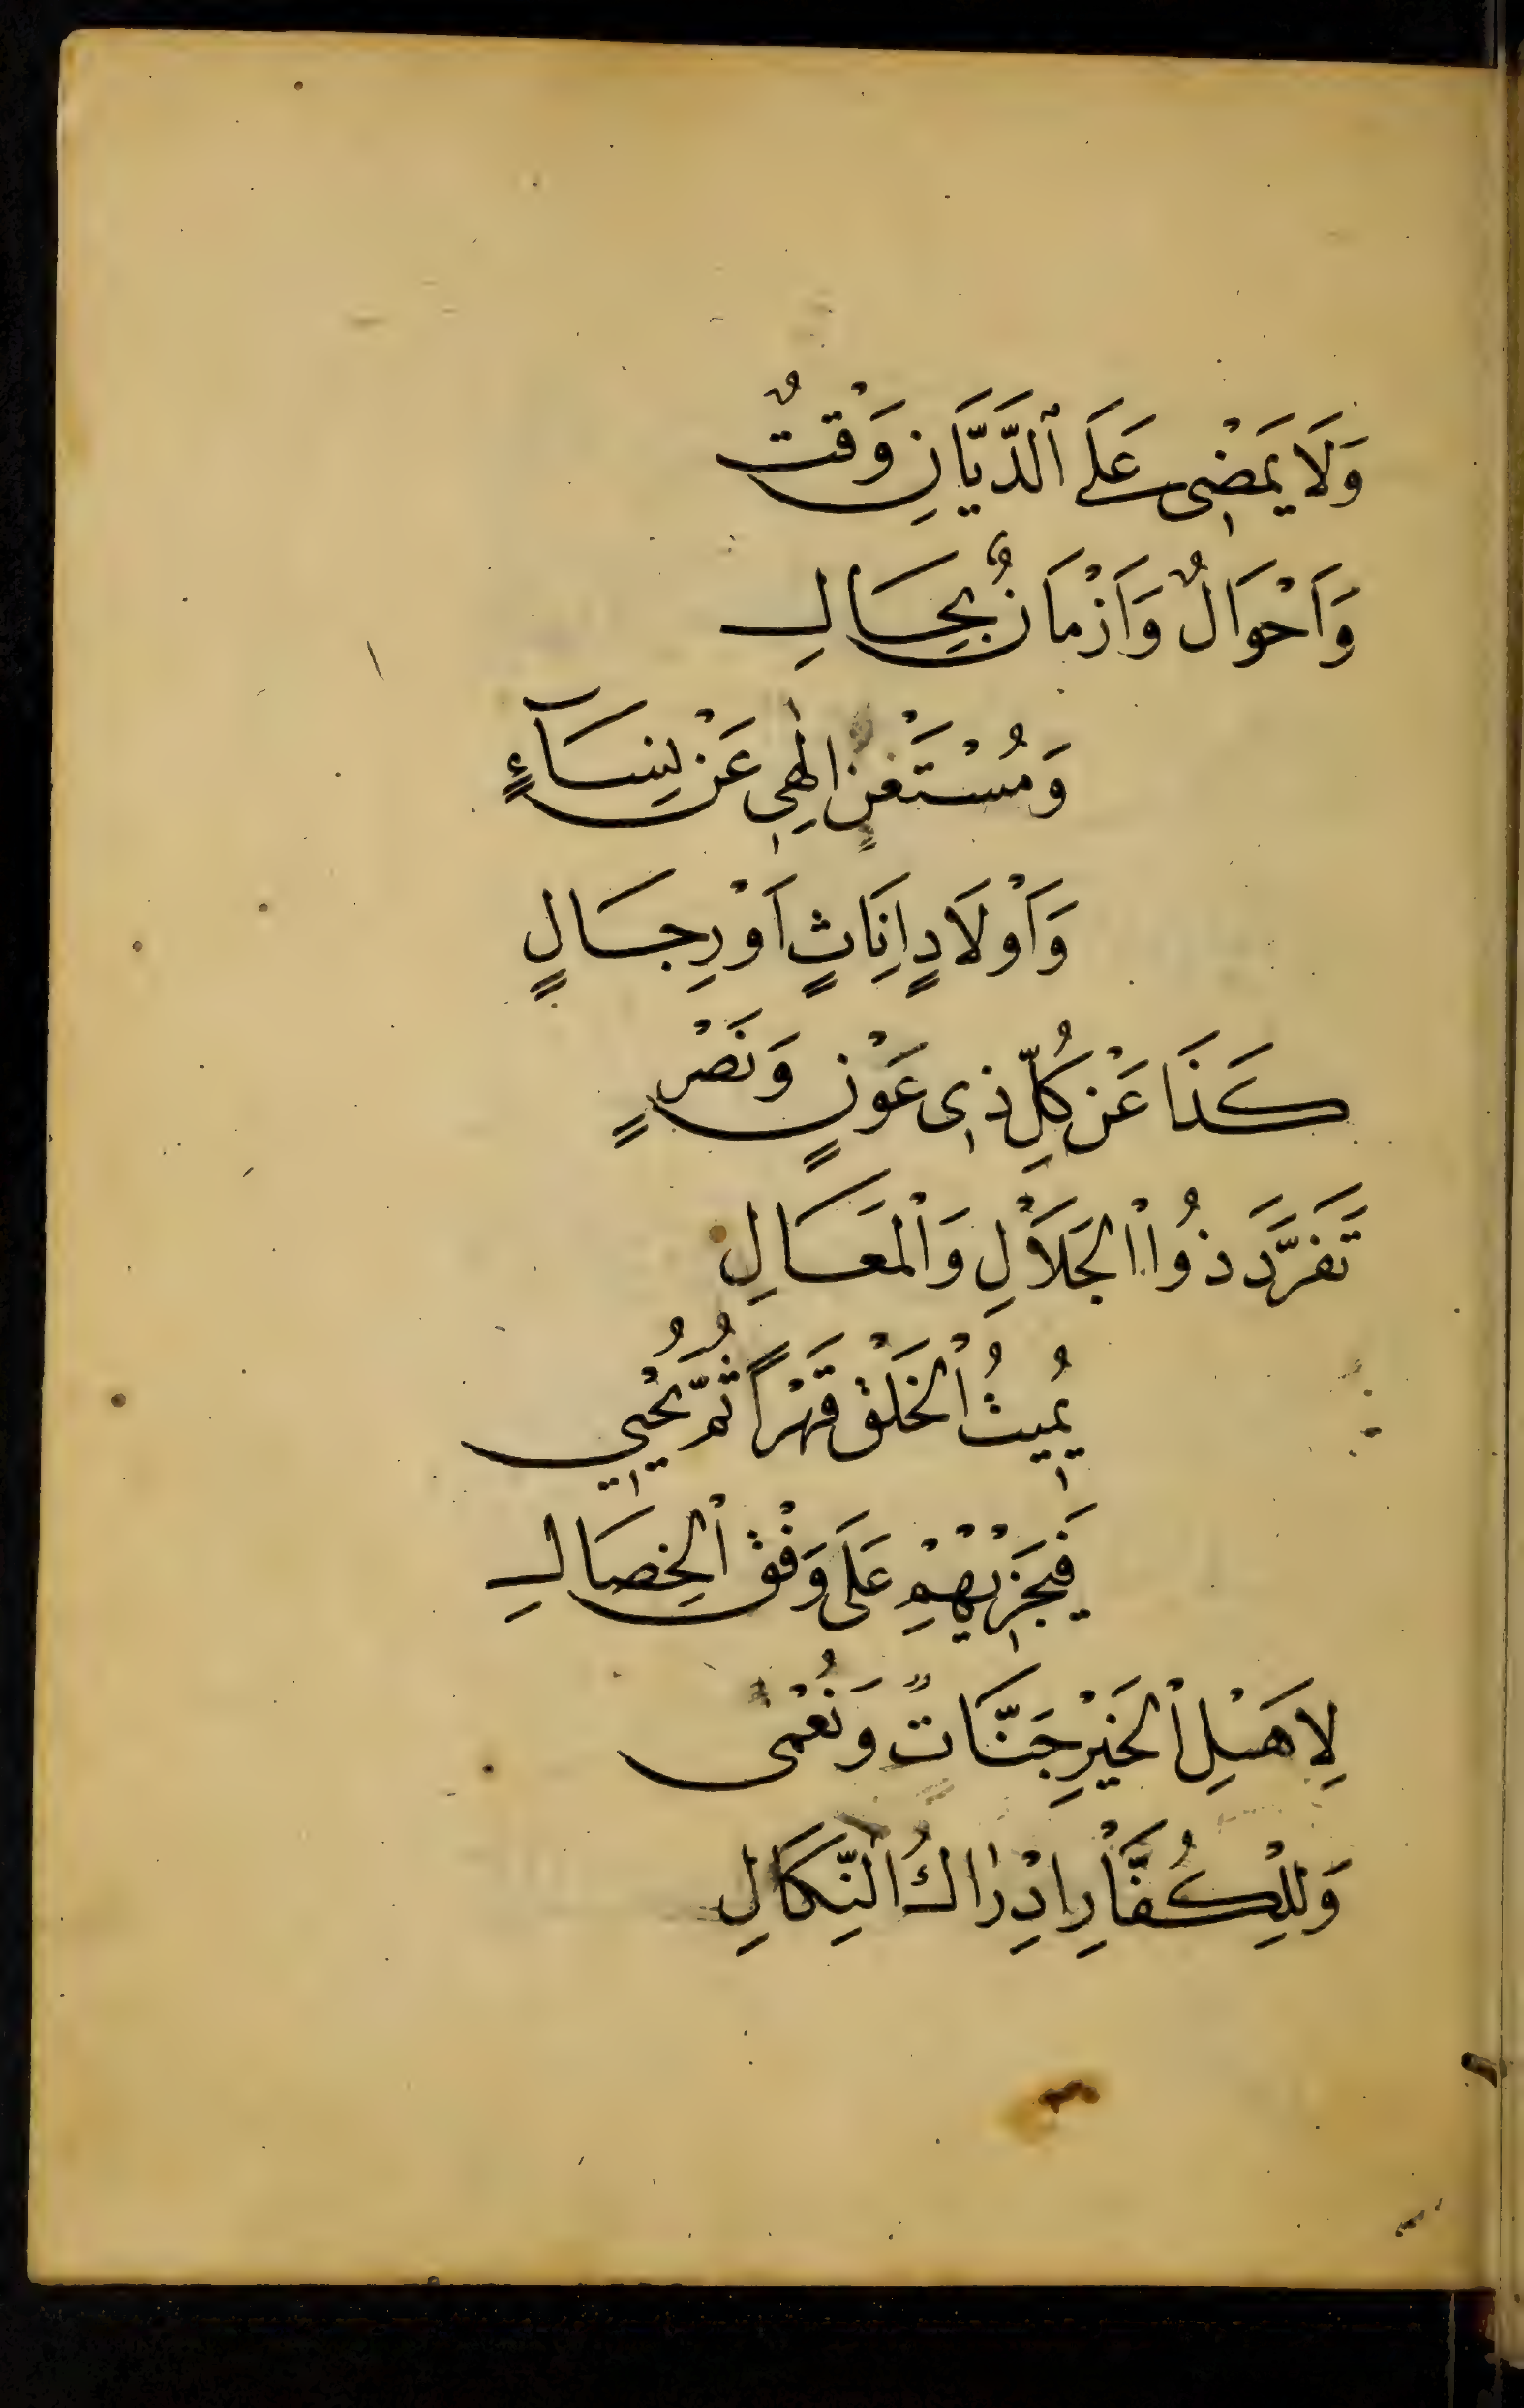 وَلَا يَمْضِى عَلَى ٱلدَّيَّانِ وَقْتٌ
وَاَحْوَالٌ وَاَزْمَانٌ بِحَالِ
وَمُسْتَغْنٍ اِلٰهِى عَنْ نِسَاءٍ
وَاَوْلَادٍ اِنَاثٍ اَوْ رِجَالٍ
كَذَا عَنْ كُلِّ ذِى عَوْنٍ وَنَصْرٍ
تَفَرَّدَ ذُواْ الْجَلَالِ وَالْمَعَالِ
يُمِيتُ الْخَلْقَ قَهْرًا ثُمَّ يُحْيِي
فَيَجْزِيْهِمْ عَلَى وَفْقِ الْخِصَالِ
لِاَهْلِ الْخَيْرِ جَنَّاتٌ وَنُعْمَى
وَلِلْكُفَّارِ اِدْرَاكُ النِّكَالِ